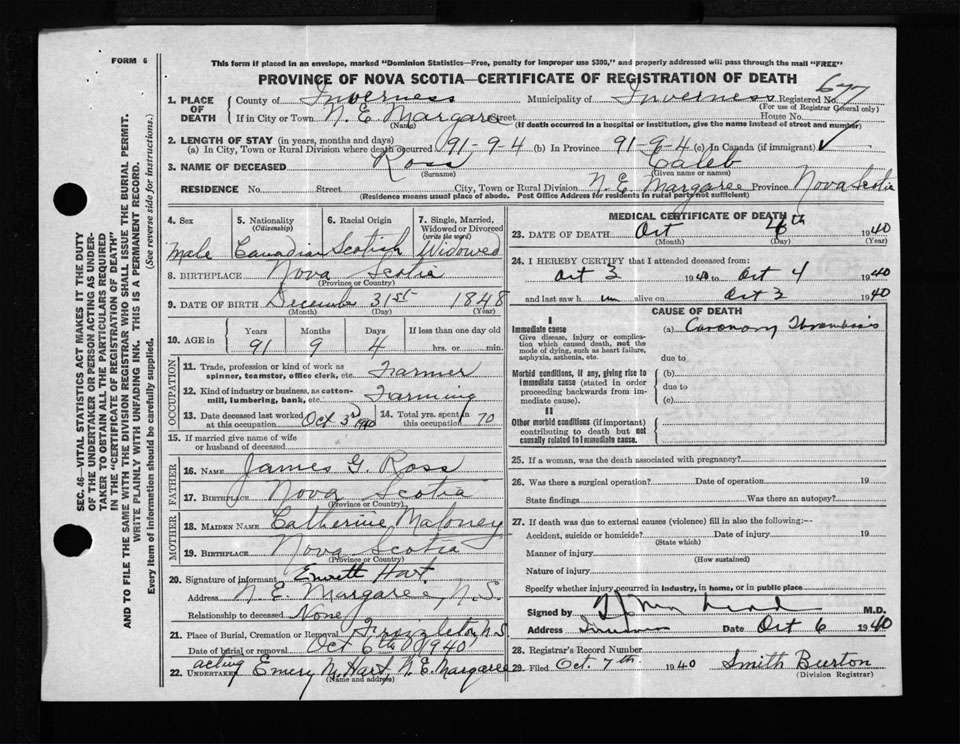 FORM 6
This form if placed in an envelope, marked "Dominion Statistics—Free, penalty for improper use $300," and properly addressed will pass through the mail "FREE"
PROVINCE OF NOVA SCOTIA—CERTIFICATE OF REGISTRATION OF DEATH
1. PLACE OF DEATH County of Inverness Municipality of Inverness Registered No. 677
(For use of Registrar General only)
If in City or Town N. E. Margaree Street House No.
(Name) (If death occurred in a hospital or institution, give the name instead of street and number)
2. LENGTH OF STAY (in years, months and days)
(a) In City, Town or Rural Division where death occurred 91-9-4 (b) In Province 91-9-4 (c) In Canada (if immigrant) ✓
3. NAME OF DECEASED Ross Caleb
(Surname) (Given name or names)
RESIDENCE No. Street City, Town or Rural Division N. E. Margaree Province Nova Scotia
(Residence means usual place of abode. Post Office Address for residents in rural parts not sufficient)
4. Sex 5. Nationality (Citizenship) 6. Racial Origin 7. Single, Married, Widowed or Divorced (write the word)
Male Canadian Scotish Widowed
8. BIRTHPLACE Nova Scotia
(Province or Country)
9. DATE OF BIRTH December 31st 1848
(Month) (Day) (Year)
10. AGE in Years Months Days If less than one day old
91 9 4 hrs. or min.
OCCUPATION
11. Trade, profession or kind of work as spinner, teamster, office clerk, etc. Farmer
12. Kind of industry or business, as cotton-mill, lumbering, bank, etc. Farming
13. Date deceased last worked at this occupation Oct 3rd 1940 14. Total yrs. spent in this occupation 70
15. If married give name of wife or husband of deceased
FATHER
16. NAME James G. Ross
17. BIRTHPLACE Nova Scotia
(Province or Country)
MOTHER
18. MAIDEN NAME Catherine Maloney
19. BIRTHPLACE Nova Scotia
(Province or Country)
20. Signature of informant Emmett Hart.
Address N. E. Margaree, N.S.
Relationship to deceased None
21. Place of Burial, Cremation or Removal Frizzleton, N.S
Date of burial or removal Oct 6th 1940
22. UNDERTAKER acting Emery M. Hart, N. E. Margaree
(Name and address)
MEDICAL CERTIFICATE OF DEATH
23. DATE OF DEATH Oct 4th 1940
(Month) (Day) (Year)
24. I HEREBY CERTIFY that I attended deceased from:
Oct 3 1940 to Oct 4 1940
and last saw h im alive on Oct 3 1940
CAUSE OF DEATH
I
Immediate cause (a) Coronary Thrombosis
Give disease, injury or complication which caused death, not the mode of dying, such as heart failure, asphyxia, asthenia, etc.
due to
Morbid conditions, if any, giving rise to immediate cause (stated in order proceeding backwards from immediate cause).
(b)
due to
(c)
II
Other morbid conditions (if important) contributing to death but not causally related to immediate cause.
25. If a woman, was the death associated with pregnancy?
26. Was there a surgical operation? Date of operation 19
State findings Was there an autopsy?
27. If death was due to external causes (violence) fill in also the following:—
Accident, suicide or homicide? Date of injury 19
(State which)
Manner of injury
(How sustained)
Nature of injury
Specify whether injury occurred in industry, in home, or in public place
Signed by M.D.
Address Date Oct 6 1940
28. Registrar's Record Number
29. Filed Oct. 7th. 1940 Smith Burton
(Division Registrar)
SEC. 46—VITAL STATISTICS ACT MAKES IT THE DUTY
OF THE UNDERTAKER OR PERSON ACTING AS UNDER-
TAKER TO OBTAIN ALL THE PARTICULARS REQUIRED
IN THE "CERTIFICATE OF REGISTRATION OF DEATH"
AND TO FILE THE SAME WITH THE DIVISION REGISTRAR WHO SHALL ISSUE THE BURIAL PERMIT.
WRITE PLAINLY WITH UNFADING INK. THIS IS A PERMANENT RECORD.
Every item of information should be carefully supplied. (See reverse side for instructions.)